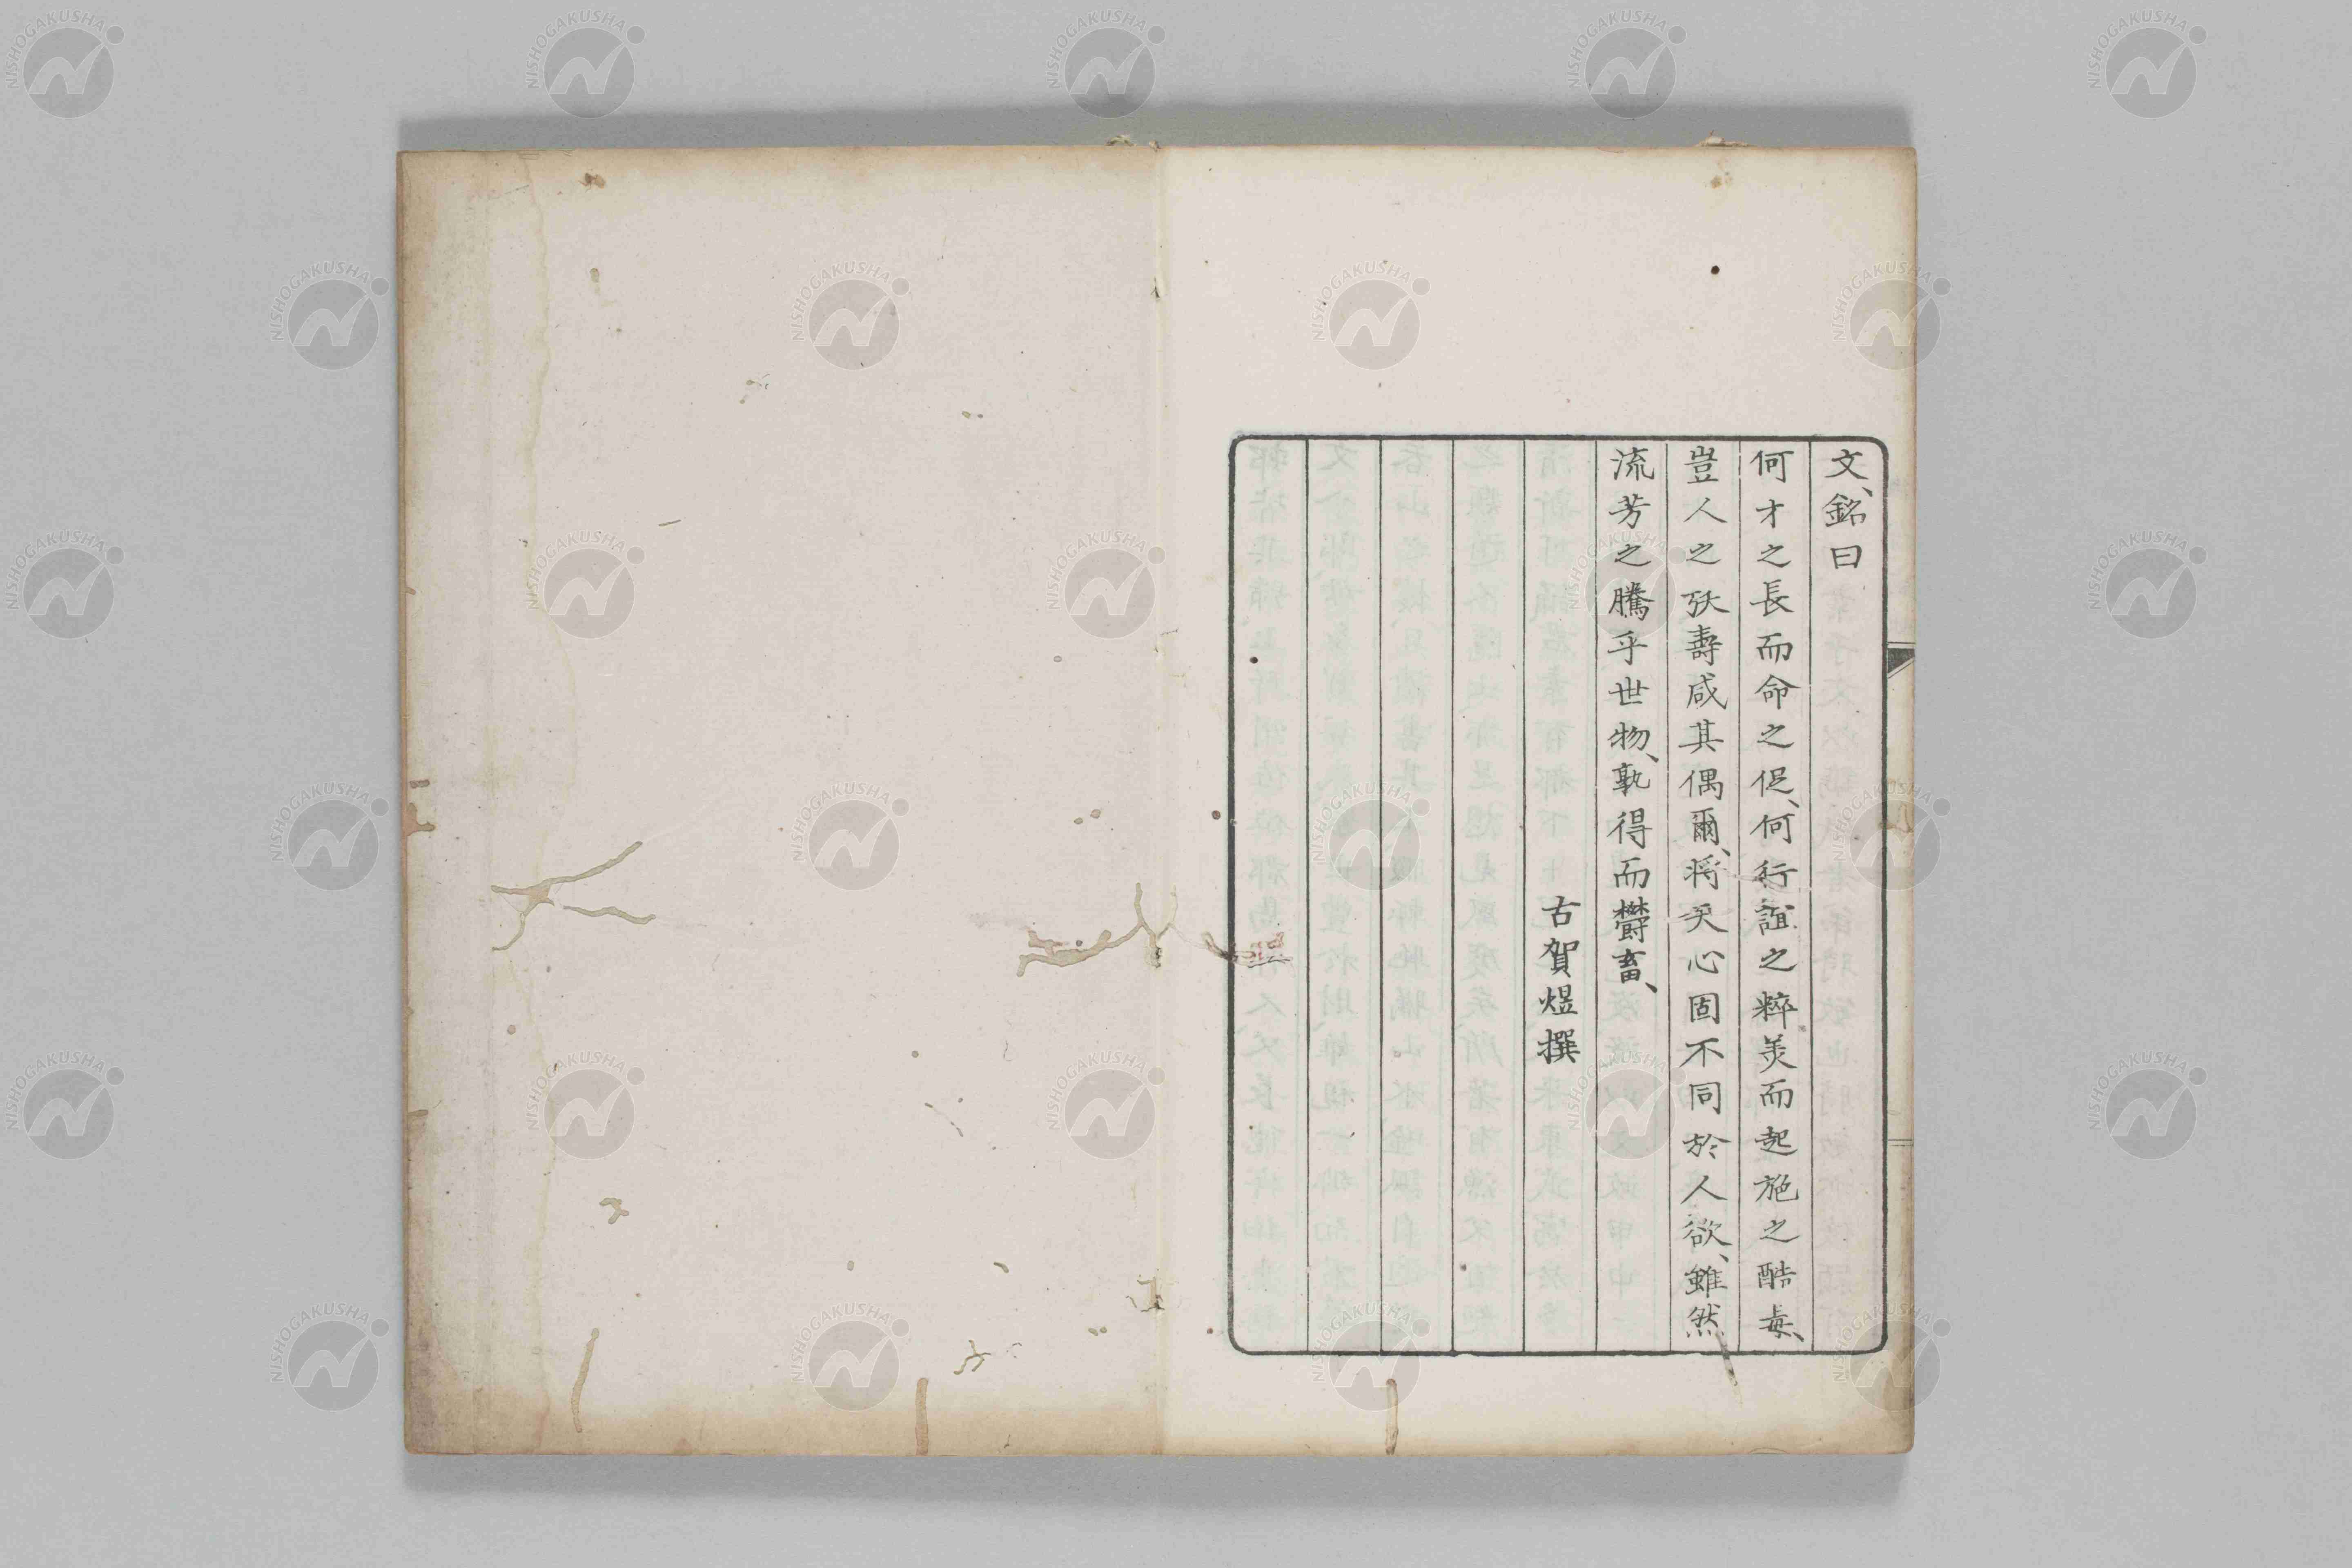 文、銘曰
何才之長而命之促、何行誼之粹美而起施之酷毒、
豈人之殀壽咸其偶爾、將天心固不同於人欲、雖然
流芳之騰乎世物、孰得而欝畜、
古賀煜撰
NISHOGAKUSHA